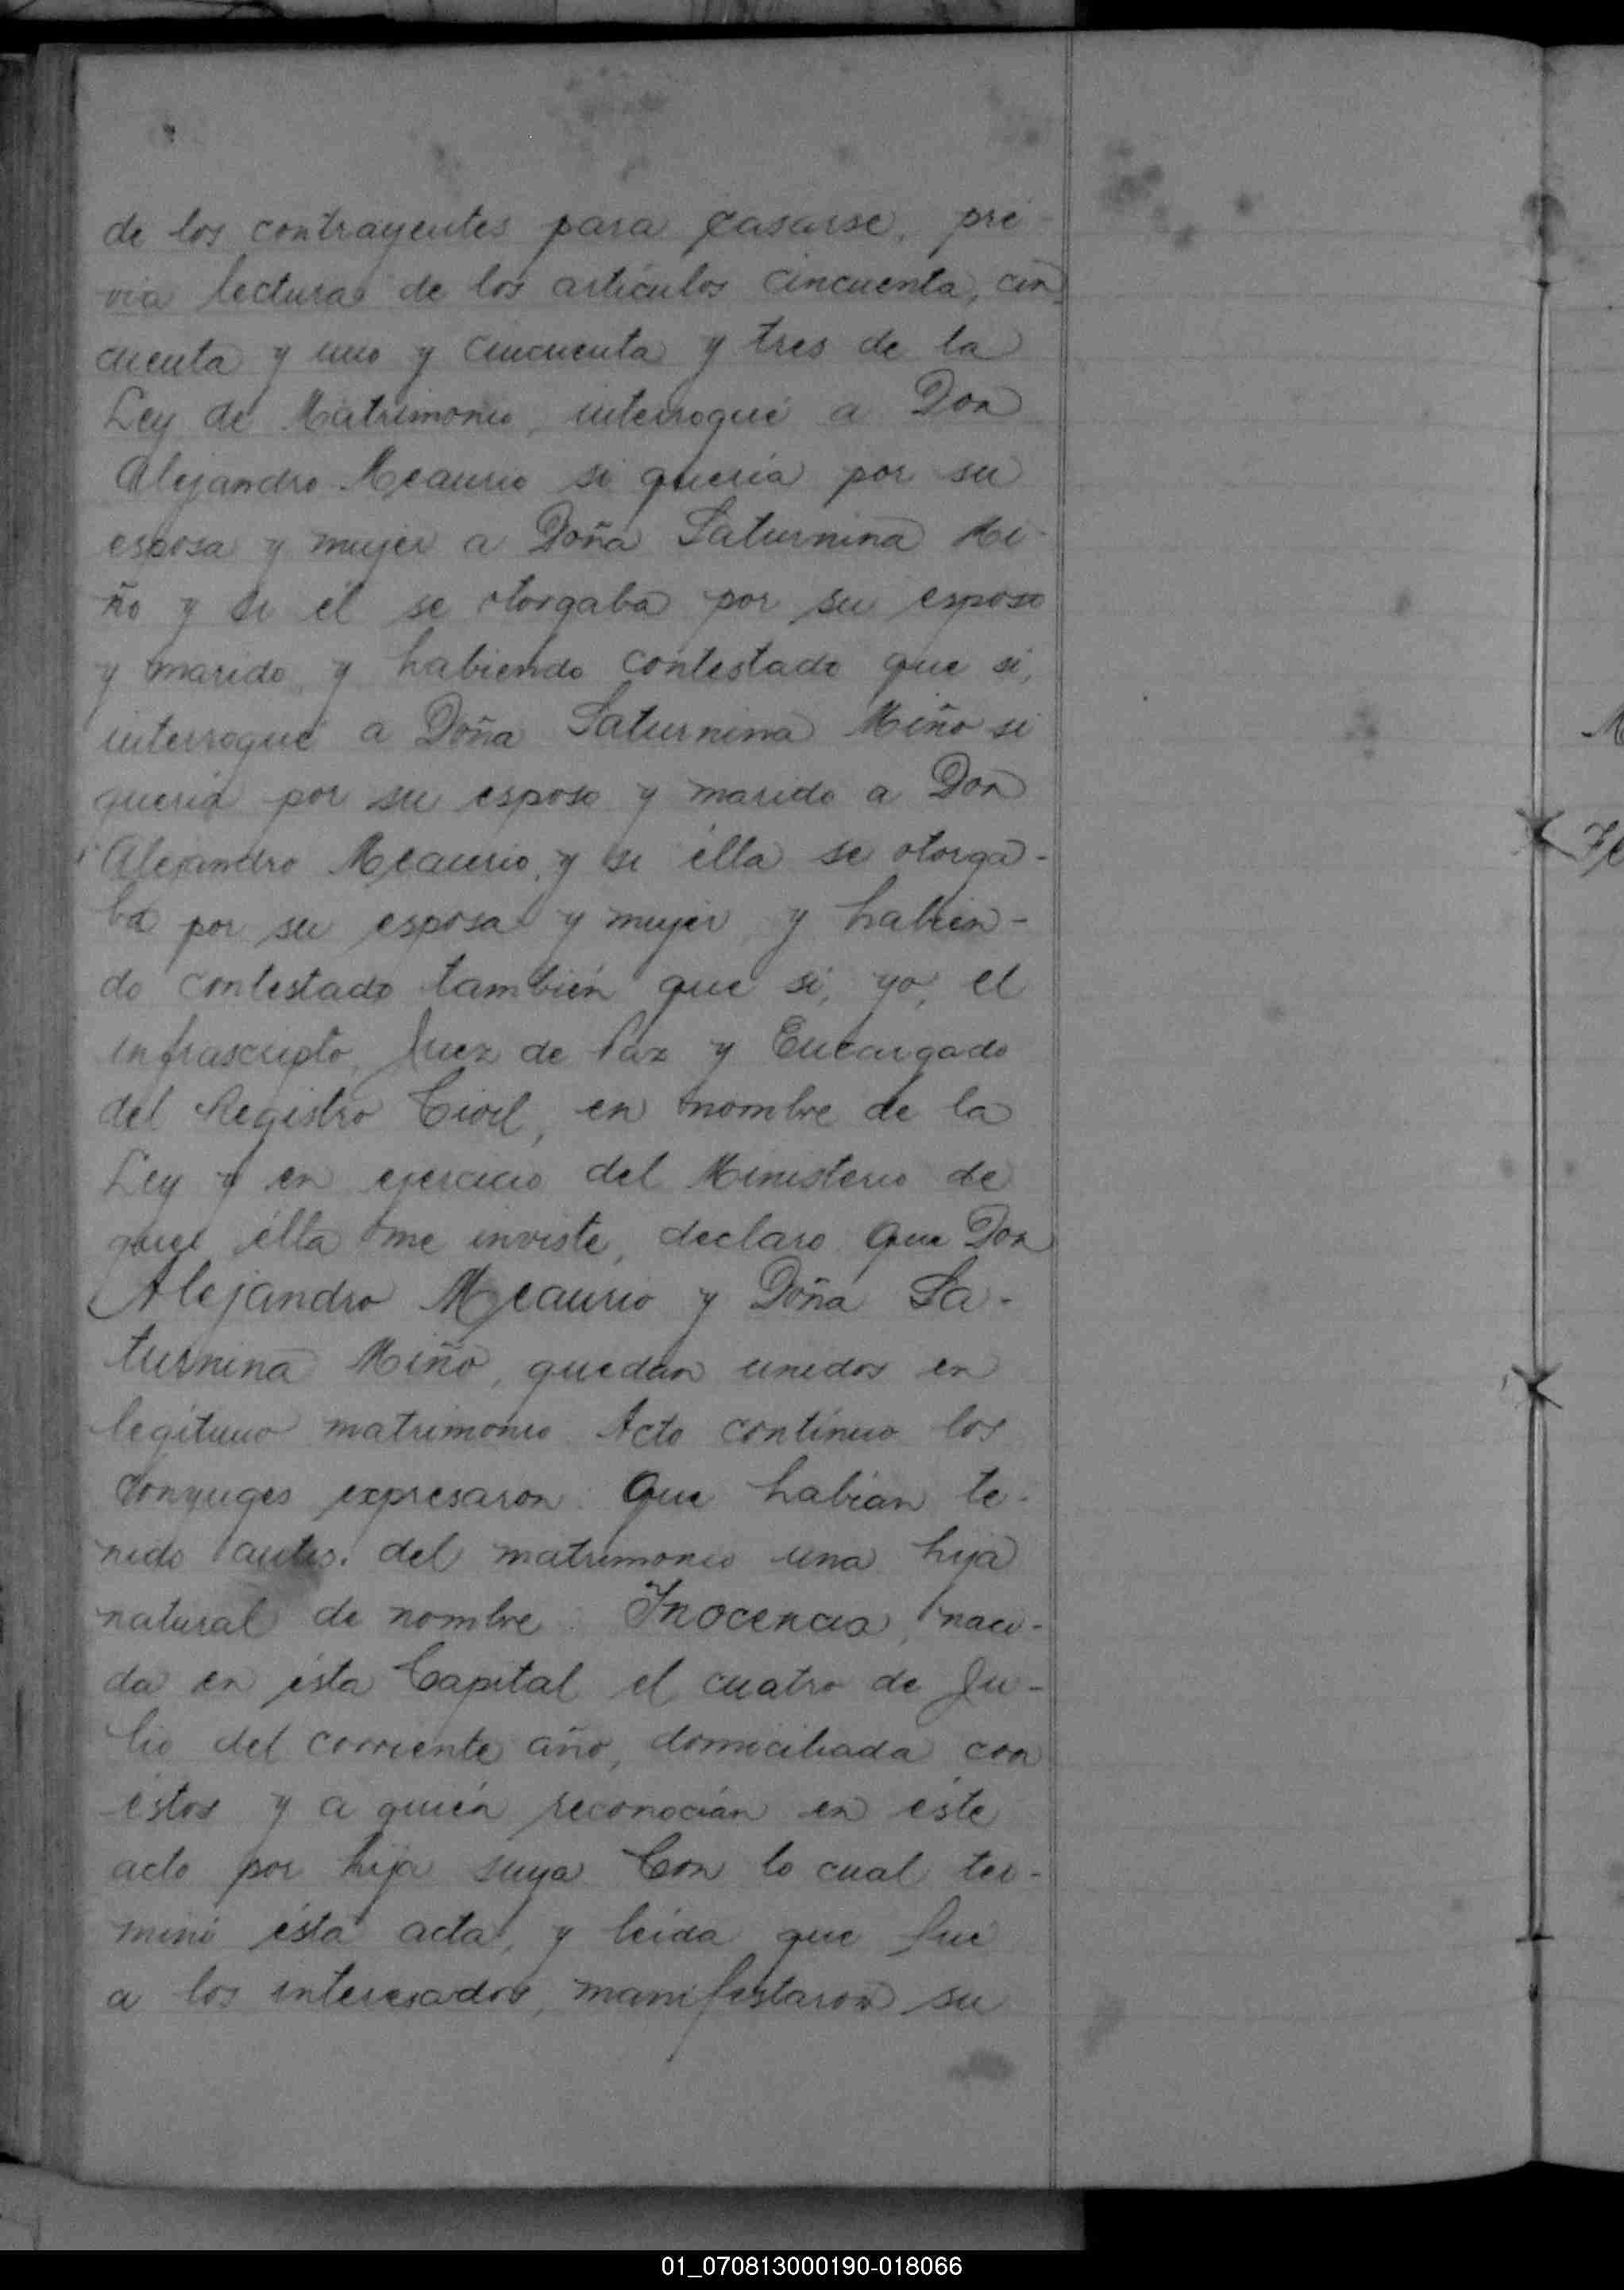 de los contrayentes para casarse, pre-
via lectura de los artículos cincuenta, cin-
cuenta y uno y cincuenta y tres de la
Ley de Matrimonio, interrogué a Don
Alejandro Meaurio si quería por su
esposa y mujer a Doña Saturnina Mi-
ño y si él se otorgaba por su esposo
y marido, y habiendo contestado que si,
interrogué a Doña Saturnina Miño si
quería por su esposo y marido a Don
Alejandro Meaurio, y si élla se otorga-
ba por su esposa y mujer, y habien-
do contestado también que si, yo, el
infrascripto, Juez de Paz y Encargado
del Registro Civil, en nombre de la
Ley y en ejercicio del Ministerio de
que élla me inviste, declaro que Don
Alejandro Meaurio y Doña Sa-
turnina Miño, quedan unidos en
legítimo matrimonio. Acto contínuo los
conyuges expresaron: Que habían te-
nido antes del matrimonio una hija
natural de nombre: Inocencia, naci-
da en ésta Capital el cuatro de Ju-
lio del corriente año, domiciliada con
éstos y a quién reconocían en éste
acto por hija suya. Con lo cual ter-
minó ésta acta, y leída que fué
a los interesados, manifestaron su
01_070813000190-018066